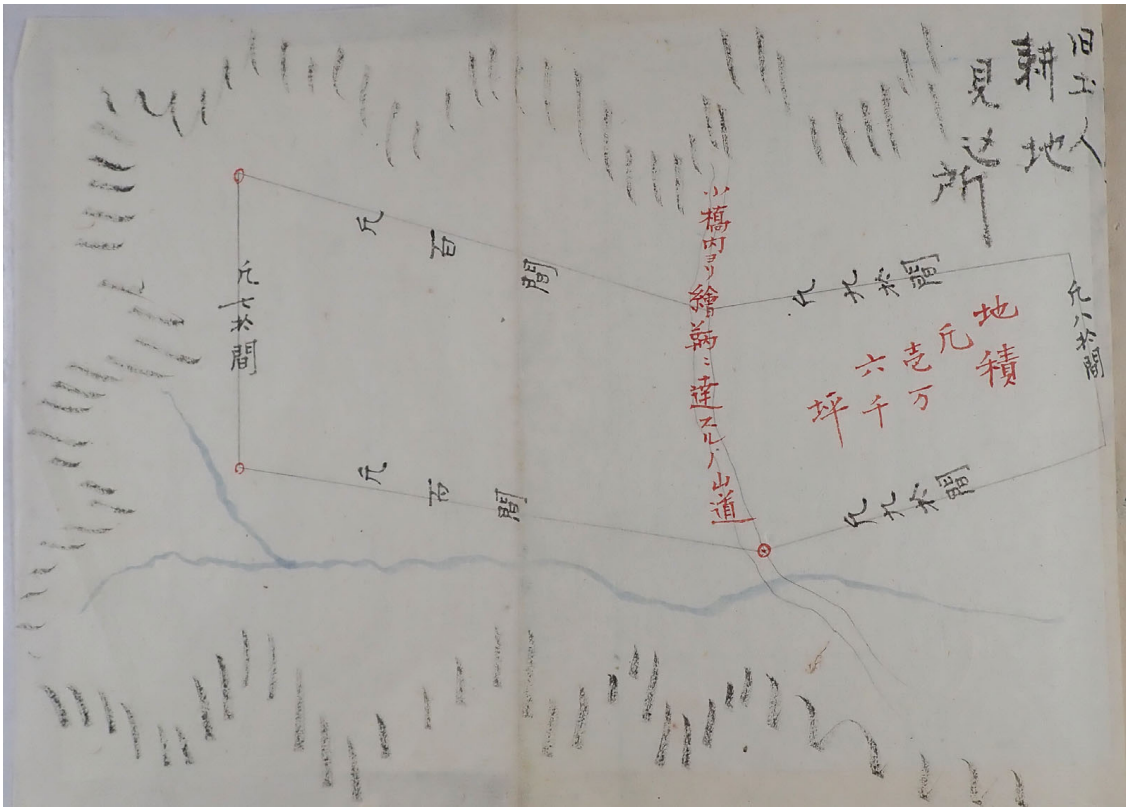 旧土人
耕地
見込所
地積
凡壱万
六千
坪
凡八拾間
凡九拾間
凡九拾間
小橋内ヨリ繪鞆ニ達スルノ山道
凡百間
凡百間
凡七拾間